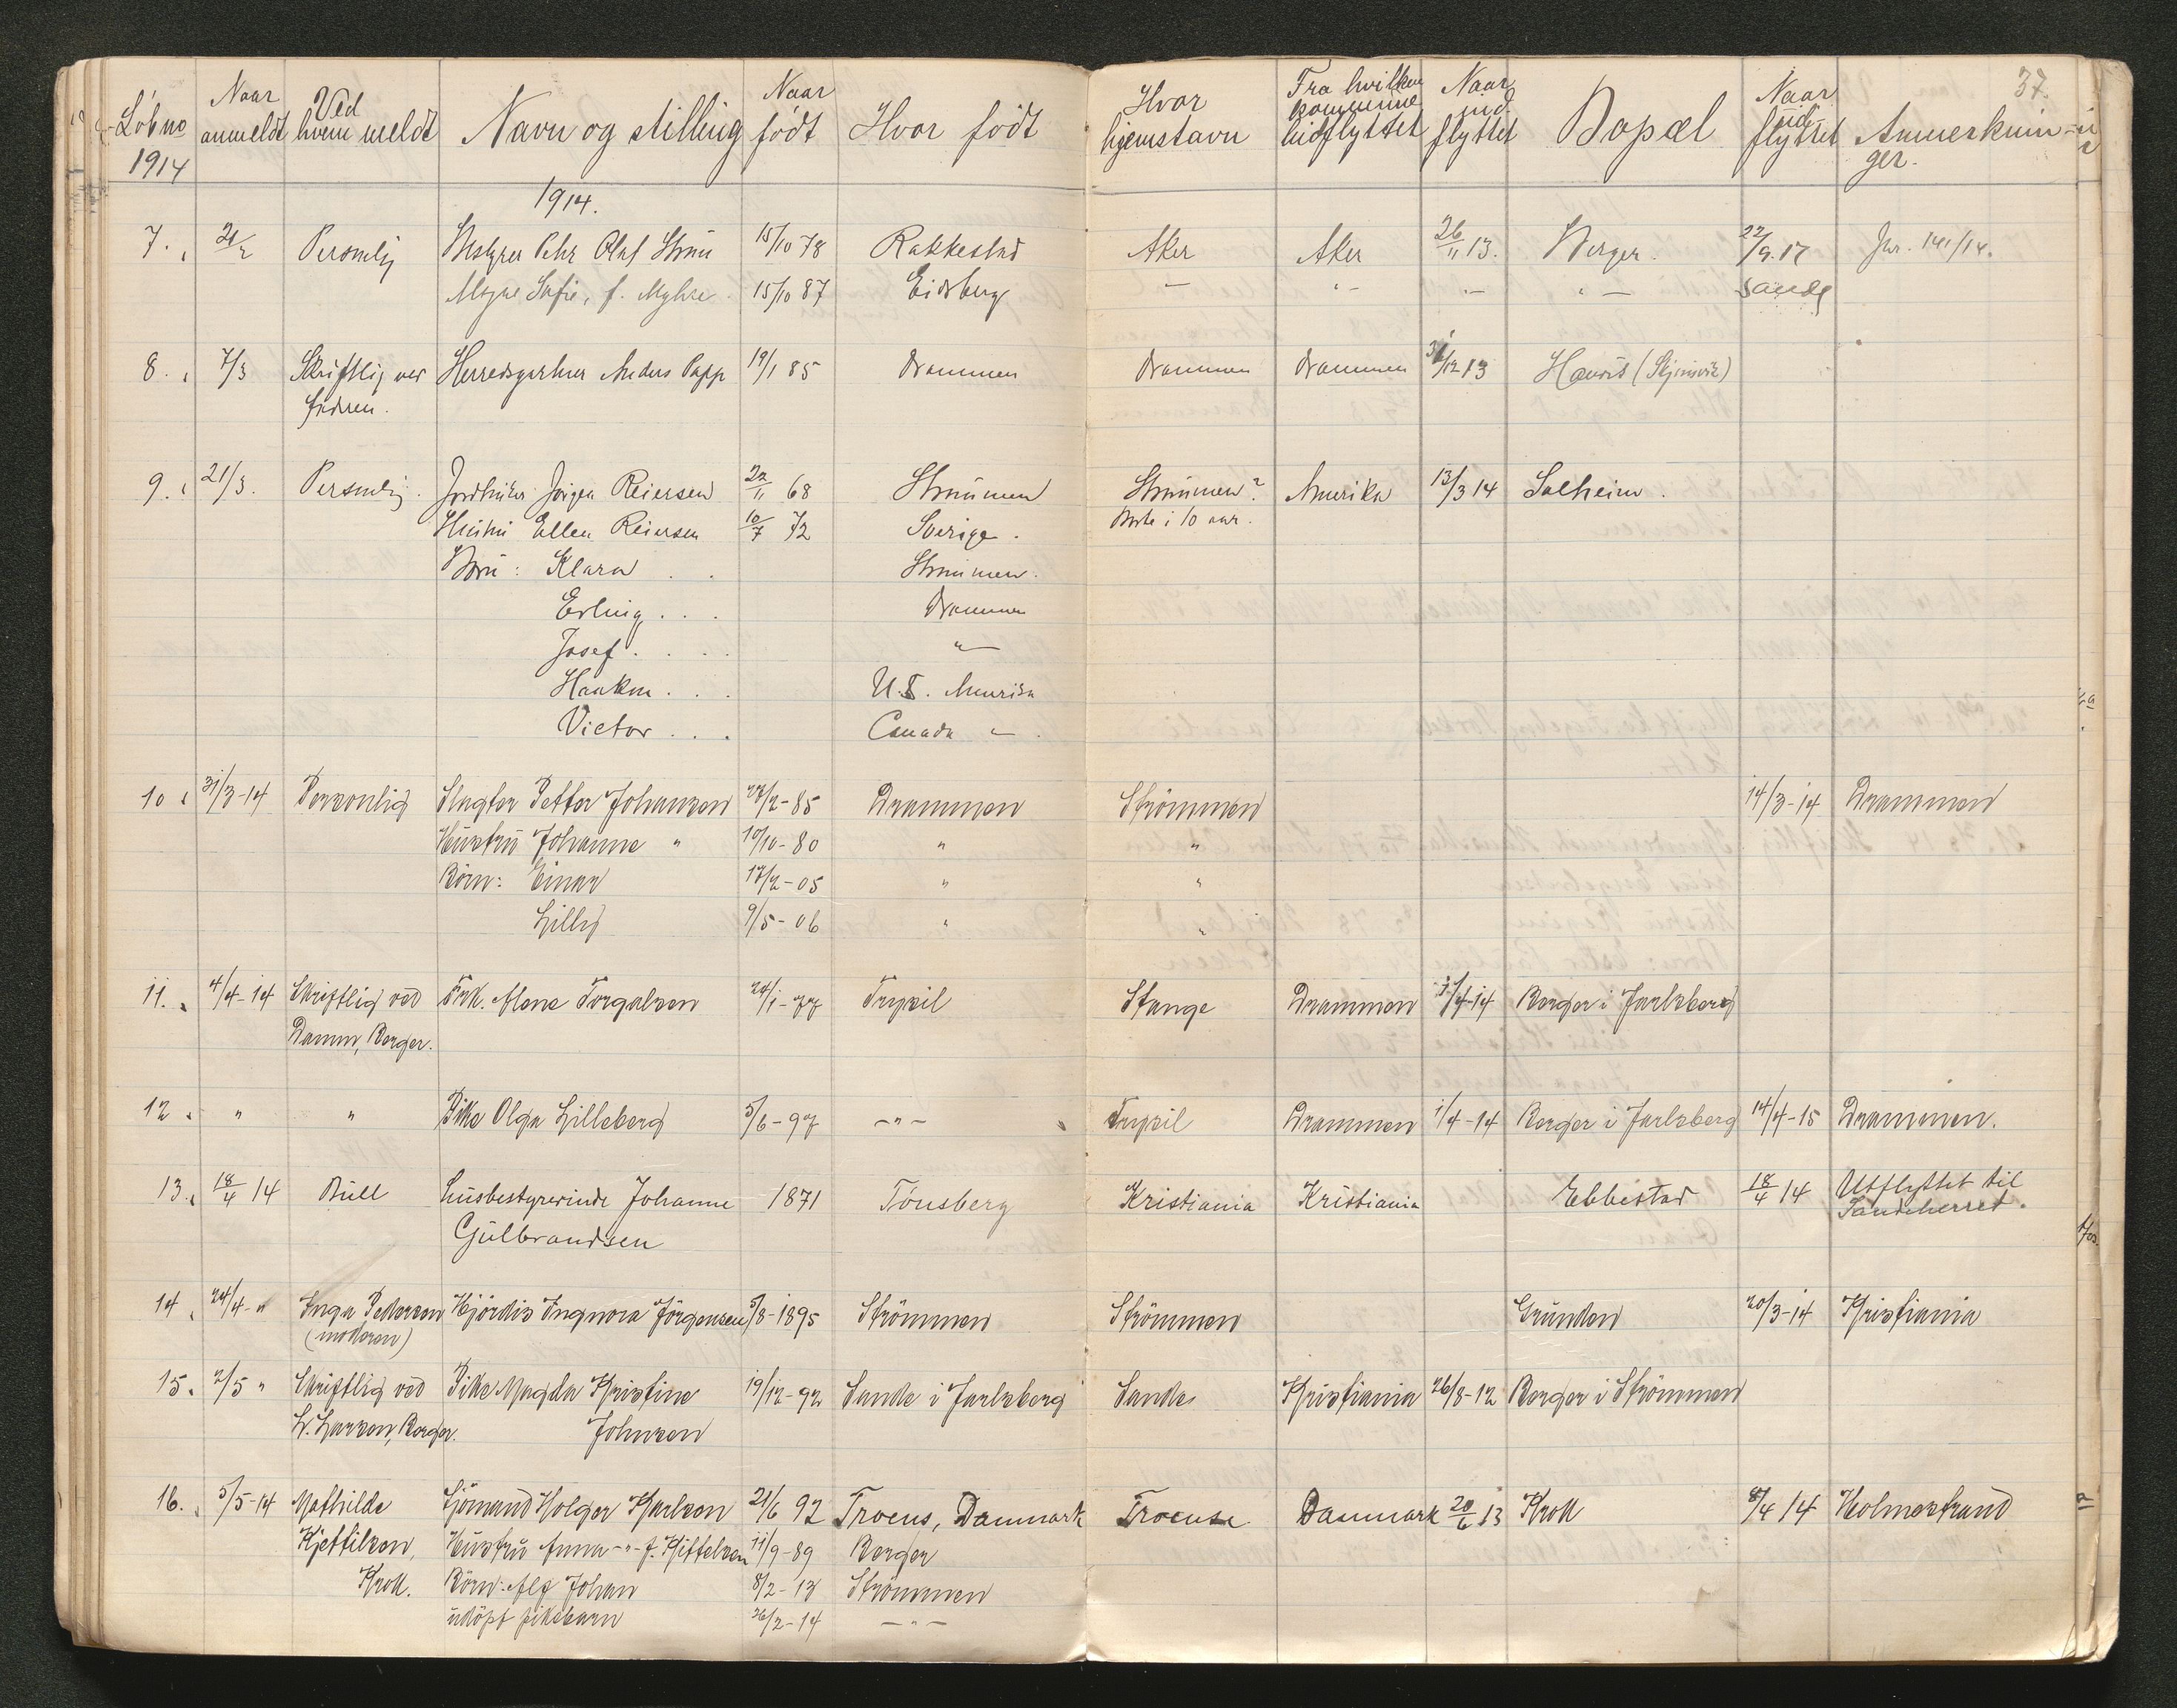 37.
Löbno 1914 | Naar anmeldt | Ved hvem meldt | Navn og stilling | Naar födt | Hvor födt | Hvor hjemstavn | Fra hvilken kommune indflyttet | Naar ind flyttet | Bopæl | Naar ud flyttet | Anmerkninger.
1914.
7. | Personlig | Bestyrer Olaf | 15/10 78 | Rakkestad | Aker | Aker | 26/11 13. | Berger. | 22/9. 17 | Jnr. 141/14.
Sofie, f. Myhre | 15/10 87 | Eidsberg | — | " — | " — | " — | Sande
8. | 7/3 | Skriftlig ved | Herredsgartner Anders Papp | 19/1 85 | Drammen | Drammen | Drammen | 31/12 13
9. | 21/3. | Personlig. | Jörgen Reiersen | 22/11 68 | Strömmen | Strömmen? | Amerika | 13/3 14 | Solheim.
Hustru Ellen Reiersen | 10/7 72 | Sverige. | Borte i 10 aar.
Börn: Klara . . | Strömmen.
Erling . . . | Drammen
Josef . . . . | " —
Haakon . . . | U.S. Amerika
Victor . . . | Canada " — .
10 | 31/3-14 | Personlig | Slagter Petter Johansen | 85 | Drammen | Strömmen | 14/3-14 | Drammen
Hustru Johanne " | 10/10-80 | " | "
Börn: Einar | 17/2-05 | " | "
Lilly | 9/5-06 | " | "
11. | 4/4-14 | Skriftlig ved | Frk. Alene Torgalsen | 24/1-77 | Trysil | Stange | Drammen | 1/4-14 | Berger i Jarlsberg
Damm, Berger.
12. | " | " | Pike Olga Lilleberg | 5/6-97 | — " — | Trysil | Drammen | 1/4-14 | Berger i Jarlsberg | 14/4-15 | Drammen.
13. | 18/4 14 | Bull | Husbestyrerinde Johanne | 1871 | Tönsberg | Kristiania | Kristiania | Ebbestad | 18/4 14 | Utflyttet til
Gulbrandsen | Sandeherred.
14. | 24/4-" | Inga Pedersen | Hjördis Ingnora Jörgensen | 5/8-1895 | Strömmen | Strömmen | Grunden | 20/3-14 | Kristiania
(moderen)
15. | 2/5 " | Skriftlig ved | Pike Magda Kristine | 19/12-92 | Sande i Jarlsberg | Sande | Kristiania | 26/8-12 | Berger i Strömmen
L. Larsen, Berger. | Johnsen
16. | 5/5-14 | Mathilde | Sjömand Holger Karlsen | 21/6 92 | Troens, Danmark | Troense | Danmark | 20/6 13 | Krok | 8/4 14 | Holmestrand
Kjettilsen, | Hustru Anna - " - f. Kittelsen | 11/9-89 | Berger
Krok. | Börn: Alf Johan | 8/2-13 | Strömmen
udöpt pikebarn | 26/2-14 | — " —